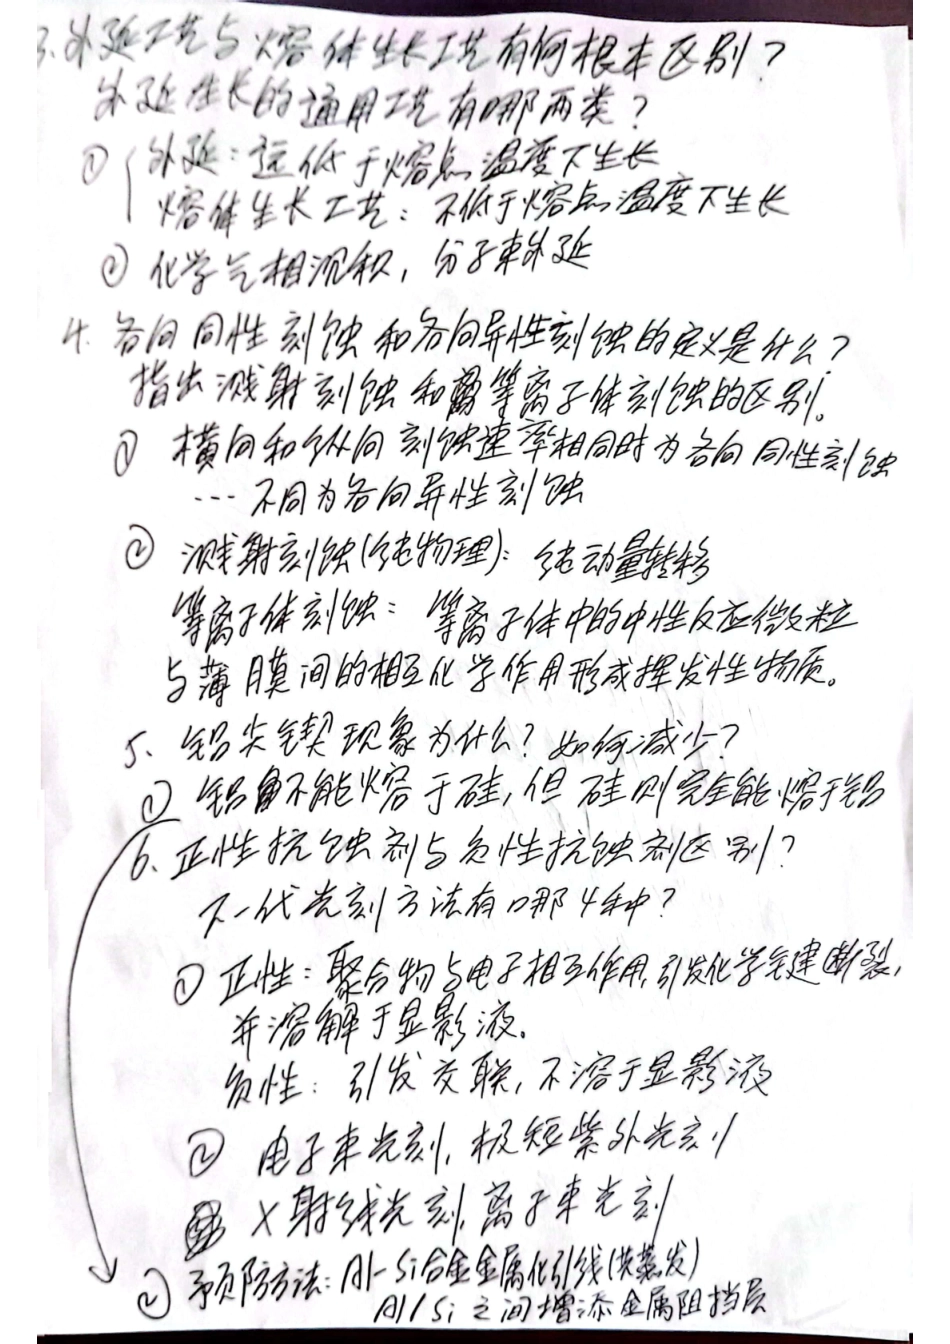 3.外延工艺与熔体生长工艺有何根本区别?
外延生长的通用工艺有哪两类?
① 外延:远低于熔点温度下生长
熔体生长工艺:不低于熔点温度下生长
② 化学气相沉积,分子束外延
4.各向同性刻蚀和各向异性刻蚀的定义是什么?
指出溅射刻蚀和等离子体刻蚀的区别。
① 横向和纵向刻蚀速率相同时为各向同性刻蚀
... 不同为各向异性刻蚀
② 溅射刻蚀(纯物理):纯动量转移
等离子体刻蚀:等离子体中的中性反应微粒
与薄膜间的相互化学作用形成挥发性物质。
5、铝尖锲现象为什么?如何减少?
① 铝不能熔于硅,但硅则完全能熔于铝
6.正性抗蚀剂与负性抗蚀剂区别?
下一代光刻方法有哪4种?
① 正性:聚合物与电子相互作用,引发化学键断裂,
并溶解于显影液。
负性:引发交联,不溶于显影液
② 电子束光刻,极短紫外光刻
X射线光刻,离子束光刻
② 预防方法:Al-Si合金金属化引线(共蒸发)
Al/Si之间增添金属阻挡层